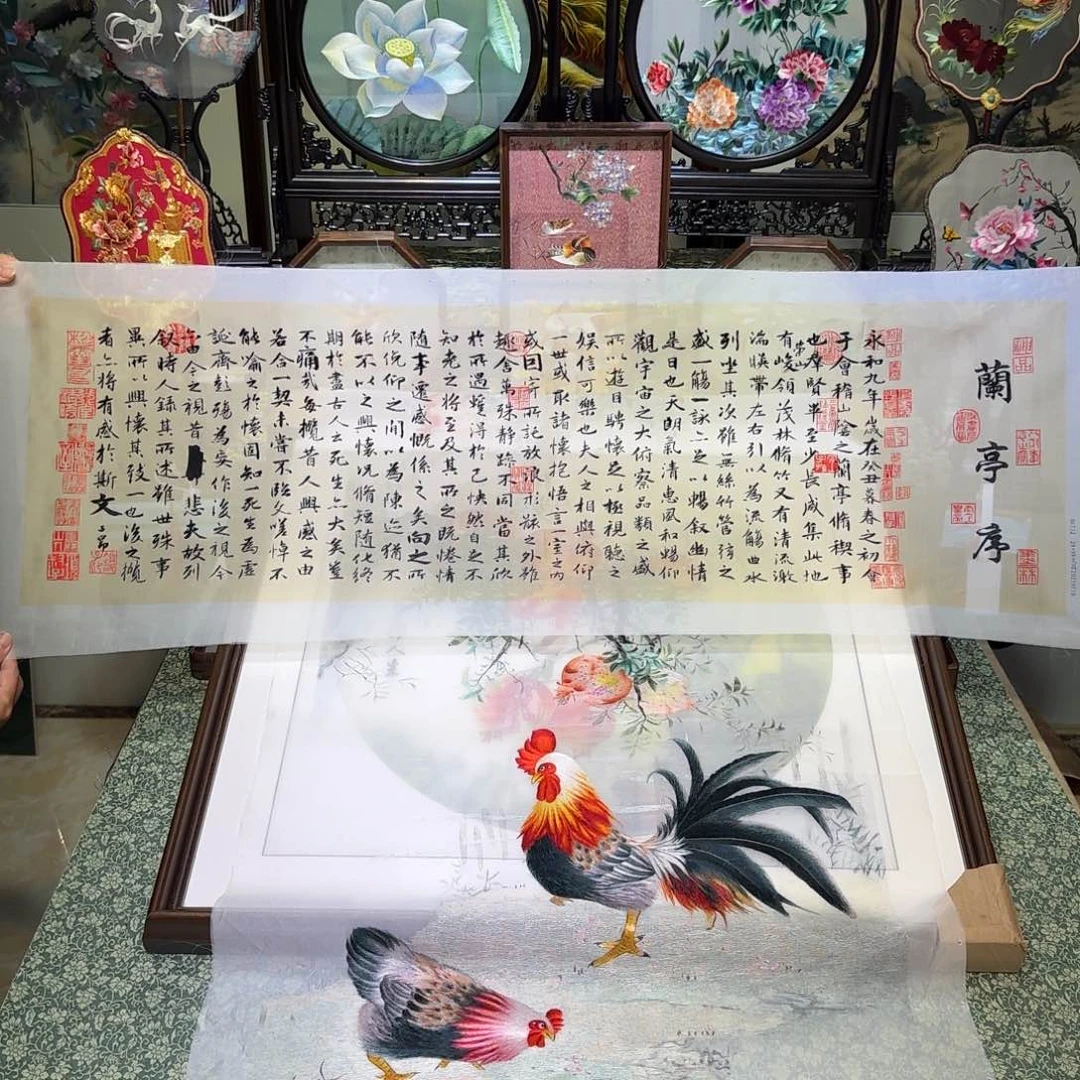 蘭亭序
永和九年歲在癸丑暮春之初會
于會稽山陰之蘭亭脩禊事
也群賢畢至少長咸集此地
有崇山峻領茂林脩竹又有清流激
湍暎帶左右引以為流觴曲水
列坐其次雖無絲竹管弦之
盛一觴一詠亦足以暢叙幽情
是日也天朗氣清惠風和暢仰
觀宇宙之大俯察品類之盛
所以遊目騁懷足以極視聽之
娛信可樂也夫人之相與俯仰
一世或取諸懷抱悟言一室之內
或因寄所託放浪形骸之外雖
趣舍萬殊靜躁不同當其欣
於所遇蹔得於己快然自足不
知老之將至及其所之既惓情
隨事遷感慨係之矣向之所
欣俛仰之間以為陳迹猶不
能不以之興懷況脩短隨化終
期於盡古人云死生亦大矣豈
不痛哉每攬昔人興感之由
若合一契未嘗不臨文嗟悼不
能喻之於懷固知一死生為虛
誕齊彭殤為妄作後之視今
亦由今之視昔悲夫故列
叙時人錄其所述雖世殊事
異所以興懷其致一也後之攬
者亦將有感於斯文 子昂